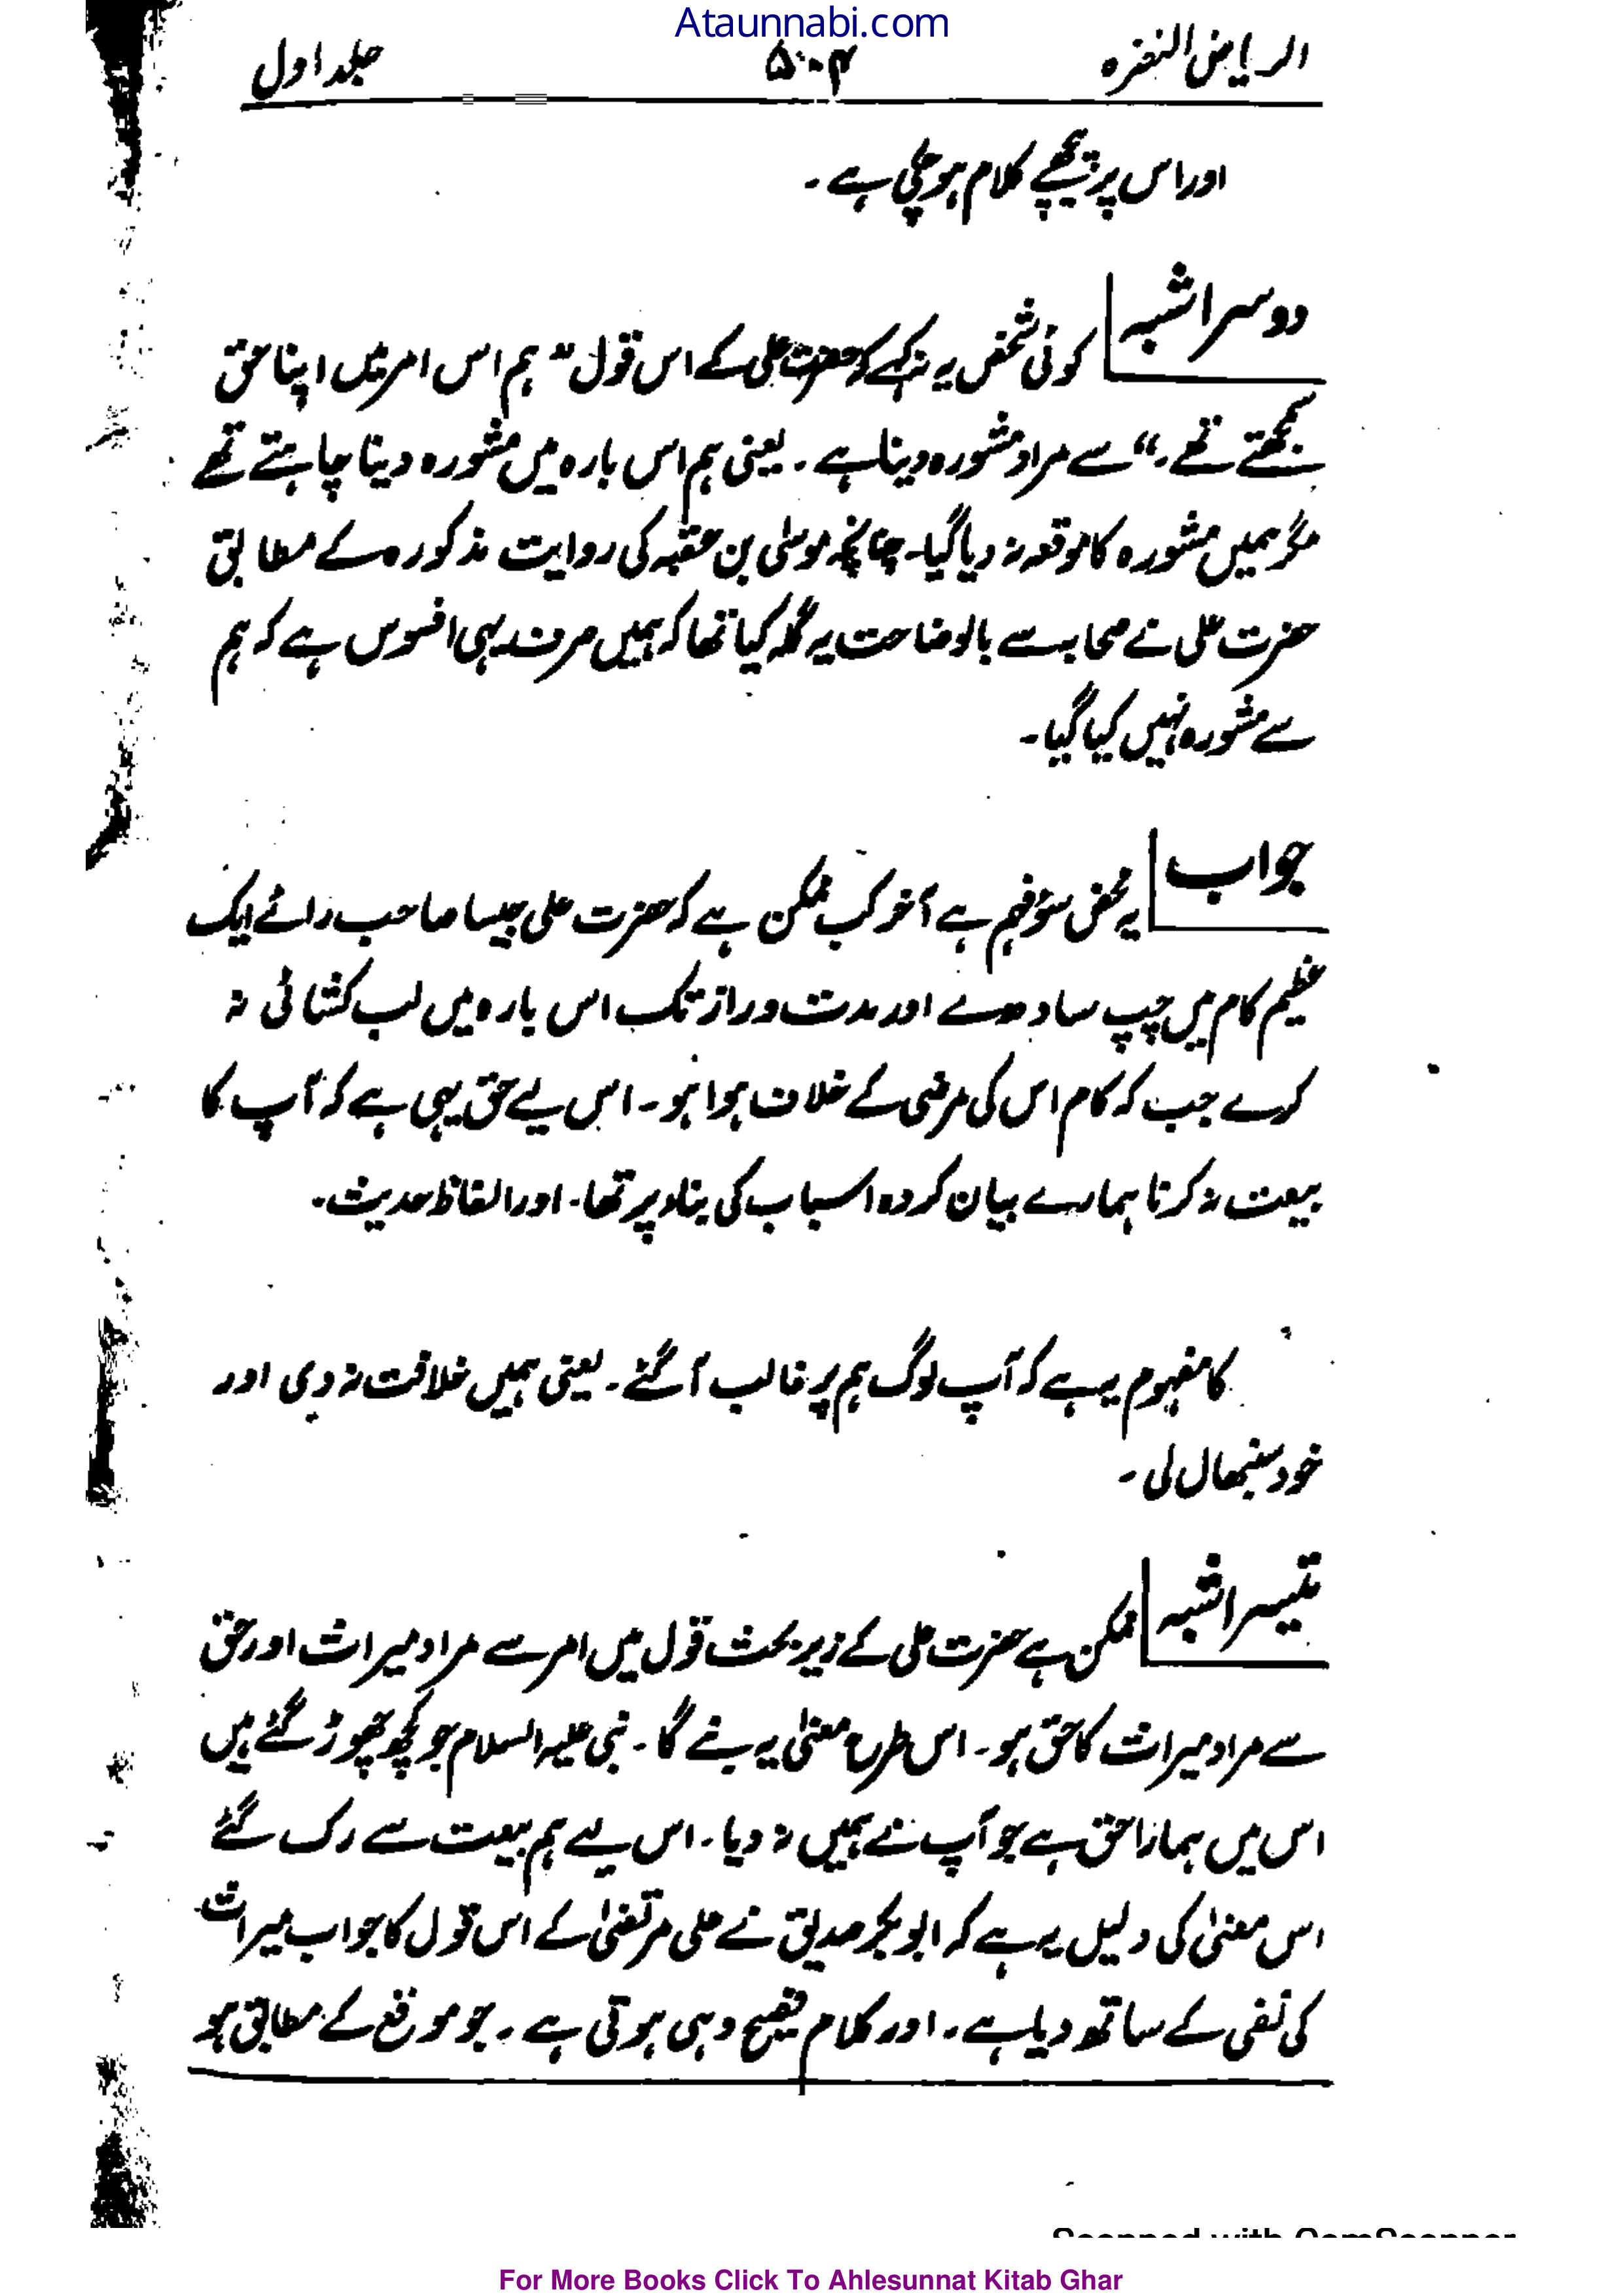 Ataunnabi.com
الریاض النضرہ ۵۰۴ جلد اول
اور اس پر پیچھے کلام ہو چکی ہے ۔
دوسرا شبہ
کوئی شخص یہ نہ کہے کہ حضرت علی کے اس قول ” ہم اس امر میں اپنا حق
سمجھتے تھے ۔“ سے مراد مشورہ دینا ہے ۔ یعنی ہم اس بارہ میں مشورہ دینا چاہتے تھے
مگر ہمیں مشورہ کا موقعہ نہ دیا گیا۔ چنانچہ موسٰی بن عقبہ کی روایت مذکورہ کے مطابق
حضرت علی نے صحابہ سے بالوضاحت یہ گلہ کیا تھا کہ ہمیں صرف یہی افسوس ہے کہ ہم
سے مشورہ نہیں کیا گیا۔
جواب
یہ محض سوء فہم ہے آخر کب ممکن ہے کہ حضرت علی جیسا صاحب رائے ایک
عظیم کام میں چپ سادھ دے اور مدت دراز تک اس بارہ میں لب کشائی نہ
کرے جب کہ کام اس کی مرضی کے خلاف ہوا ہو۔ اس لیے حق یہی ہے کہ آپ کا
بیعت نہ کرنا ہمارے بیان کردہ اسباب کی بناء پر تھا۔ اور الفاظ حدیث۔
کا مفہوم یہ ہے کہ آپ لوگ ہم پر غالب آ گئے ۔ یعنی ہمیں خلافت نہ دی اور
خود سنبھال لی ۔
تیسرا شبہ
ممکن ہے حضرت علی کے زیر بحث قول میں امر سے مراد میراث اور حق
سے مراد میراث کا حق ہو۔ اس طرح معنیٰ یہ بنے گا ۔ نبی علیہ السلام جو کچھ چھوڑ گئے ہیں
اس میں ہمارا حق ہے جو آپ نے ہمیں نہ دیا ۔ اس لیے ہم بیعت سے رک گئے
اس معنیٰ کی دلیل یہ ہے کہ ابو بکر صدیق نے علی مرتضیٰ کے اس قول کا جواب میراث
کی نفی کے ساتھ دیا ہے ۔ اور کلام فصیح وہی ہوتی ہے ۔ جو موقع کے مطابق ہو
Scanned with CamScanner
For More Books Click To Ahlesunnat Kitab Ghar